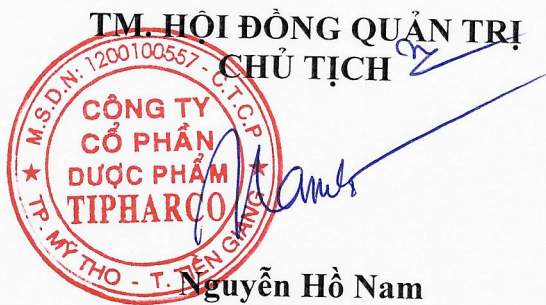 TM. HỘI ĐỒNG QUẢN TRỊ
CHỦ TỊCH
M.S.D.N: 1200100557 - C.T.C.P
CÔNG TY
CỔ PHẦN
DƯỢC PHẨM
TIPHARCO
TP. MỸ THO - T. TIỀN GIANG
Nguyễn Hồ Nam